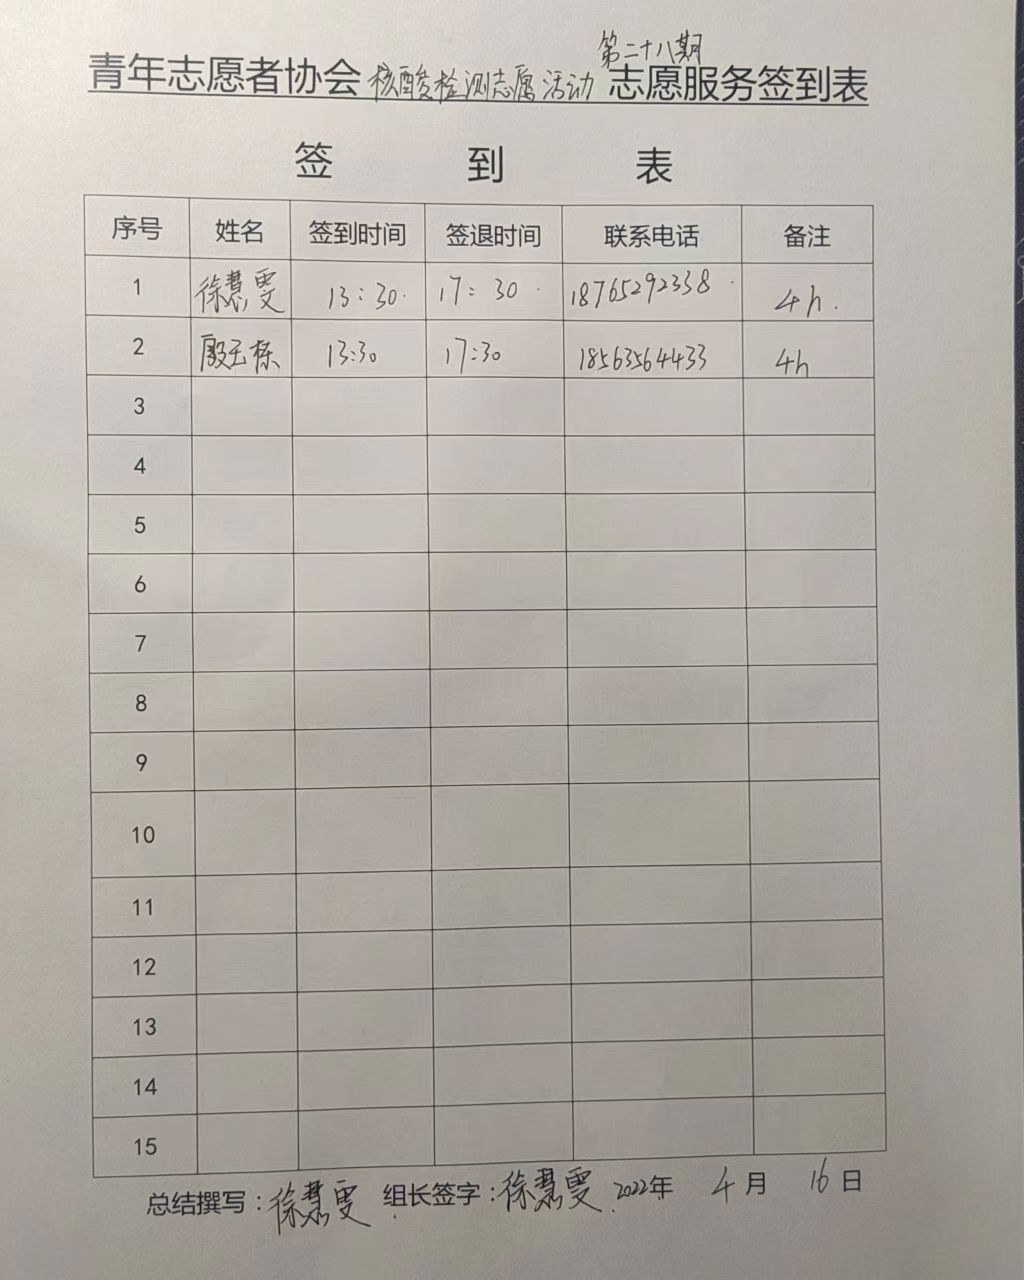 第二十八期
青年志愿者协会核酸检测志愿活动志愿服务签到表
签 到 表
序号 姓名 签到时间 签退时间 联系电话 备注
1 徐慧雯 13:30. 17:30. 18765292338. 4h.
2 殷玉栋 13:30 17:30 18563564433 4h
3
4
5
6
7
8
9
10
11
12
13
14
15
总结撰写:徐慧雯 组长签字:徐慧雯. 2022年 4月 16日